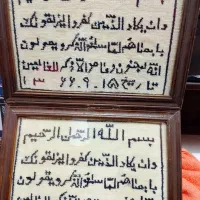 وان يكاد الذين كفروا ليزلقونك
بابصارهم لما سمعوا الذكر ويقولون
انه لمجنون وما هو الا ذكر للعالمين
تاريخ
بسم الله الرحمن الرحيم
وان يكاد الذين كفروا ليزلقونك
بابصارهم لما سمعوا الذكر ويقولون